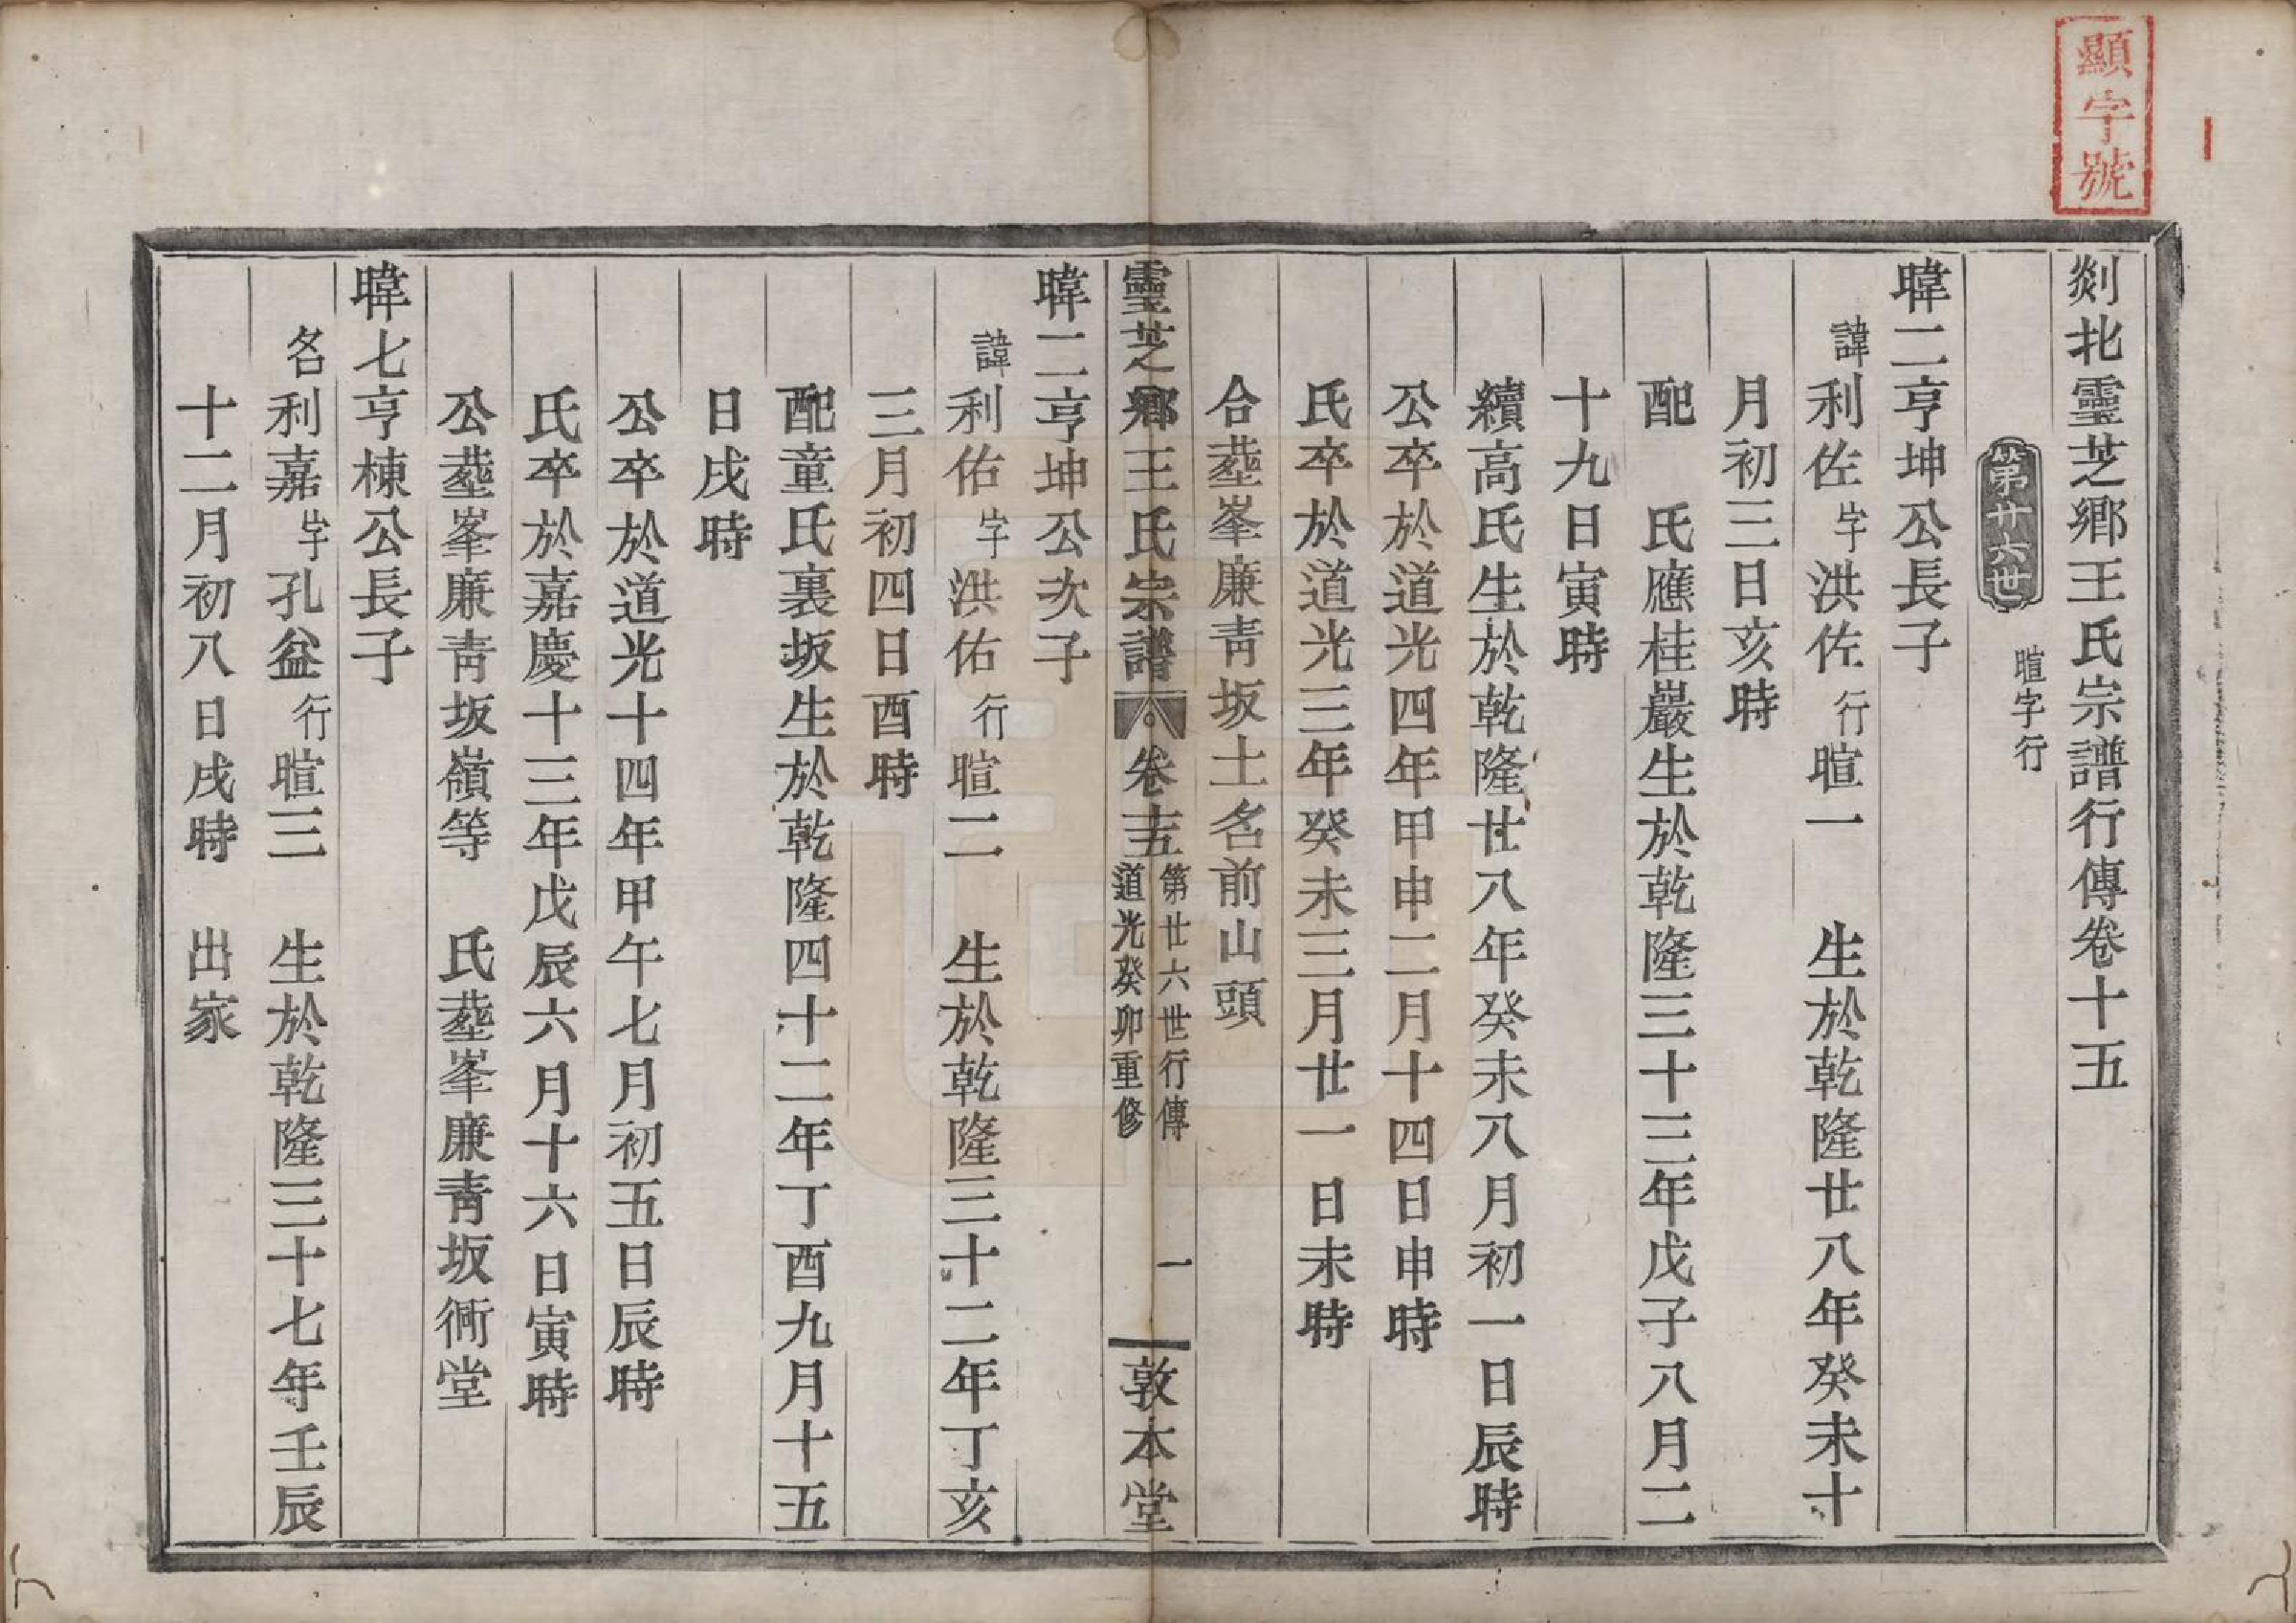 顯字號
剡北靈芝鄉王氏宗譜行傳卷十五
第廿六世 暄字行
暐二亨坤公長子
諱利佐字洪佐行暄一 生於乾隆廿八年癸未十
月初三日亥時
配 氏應桂巖生於乾隆三十三年戊子八月二
十九日寅時
續高氏生於乾隆廿八年癸未八月初一日辰時
公卒於道光四年甲申二月十四日申時
氏卒於道光三年癸未三月廿一日未時
合塟峯廉青坂土名前山頭
靈芝鄉王氏宗譜 卷十五 第廿六世行傳 道光癸卯重修 一 敦本堂
暐二亨坤公次子
諱利佑字洪佑行暄二 生於乾隆三十二年丁亥
三月初四日酉時
配童氏裏坂生於乾隆四十二年丁酉九月十五
日戌時
公卒於道光十四年甲午七月初五日辰時
氏卒於嘉慶十三年戊辰六月十六日寅時
公塟峯廉青坂嶺等 氏塟峯廉青坂衕堂
暐七亨棟公長子
名利嘉字孔益行暄三 生於乾隆三十七年壬辰
十二月初八日戌時 出家